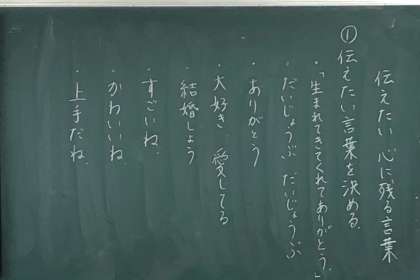 伝えたい 心に残る言葉
①伝えたい言葉を決める。
・「生まれてきてくれてありがとう」
・だいじょうぶ だいじょうぶ
・ありがとう
・大好き 愛してる
・結婚しよう
・すごいね。
・かわいいね。
・上手だね。